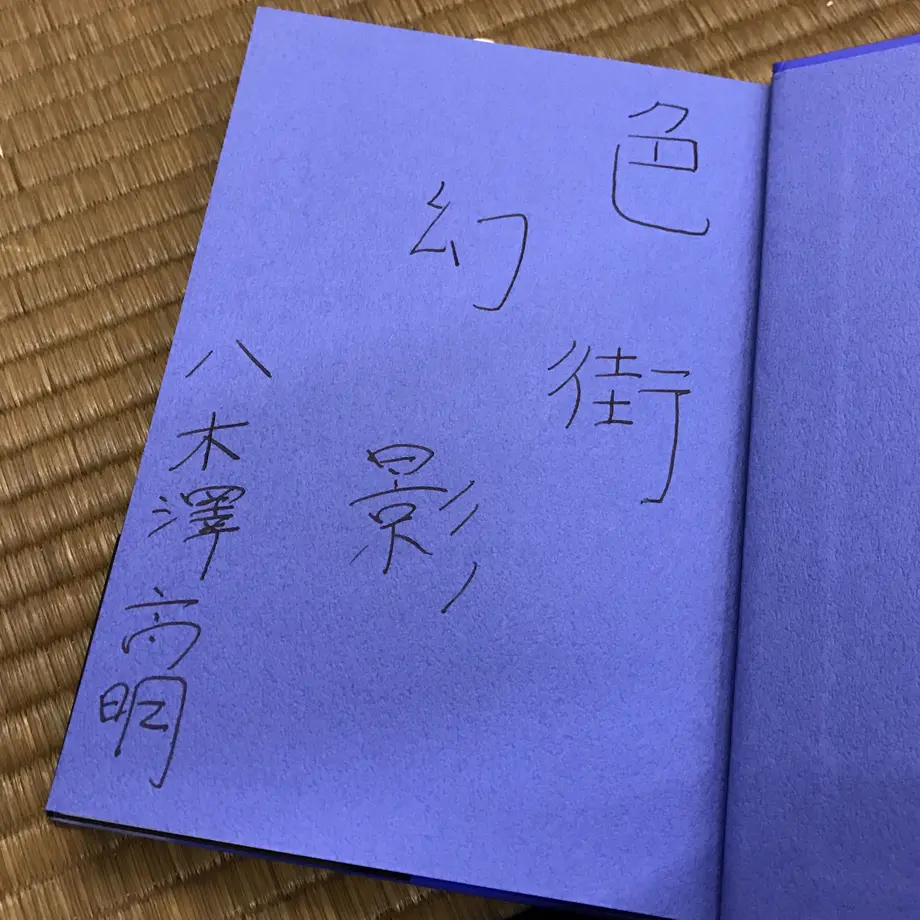 色街
幻影
八木澤高明